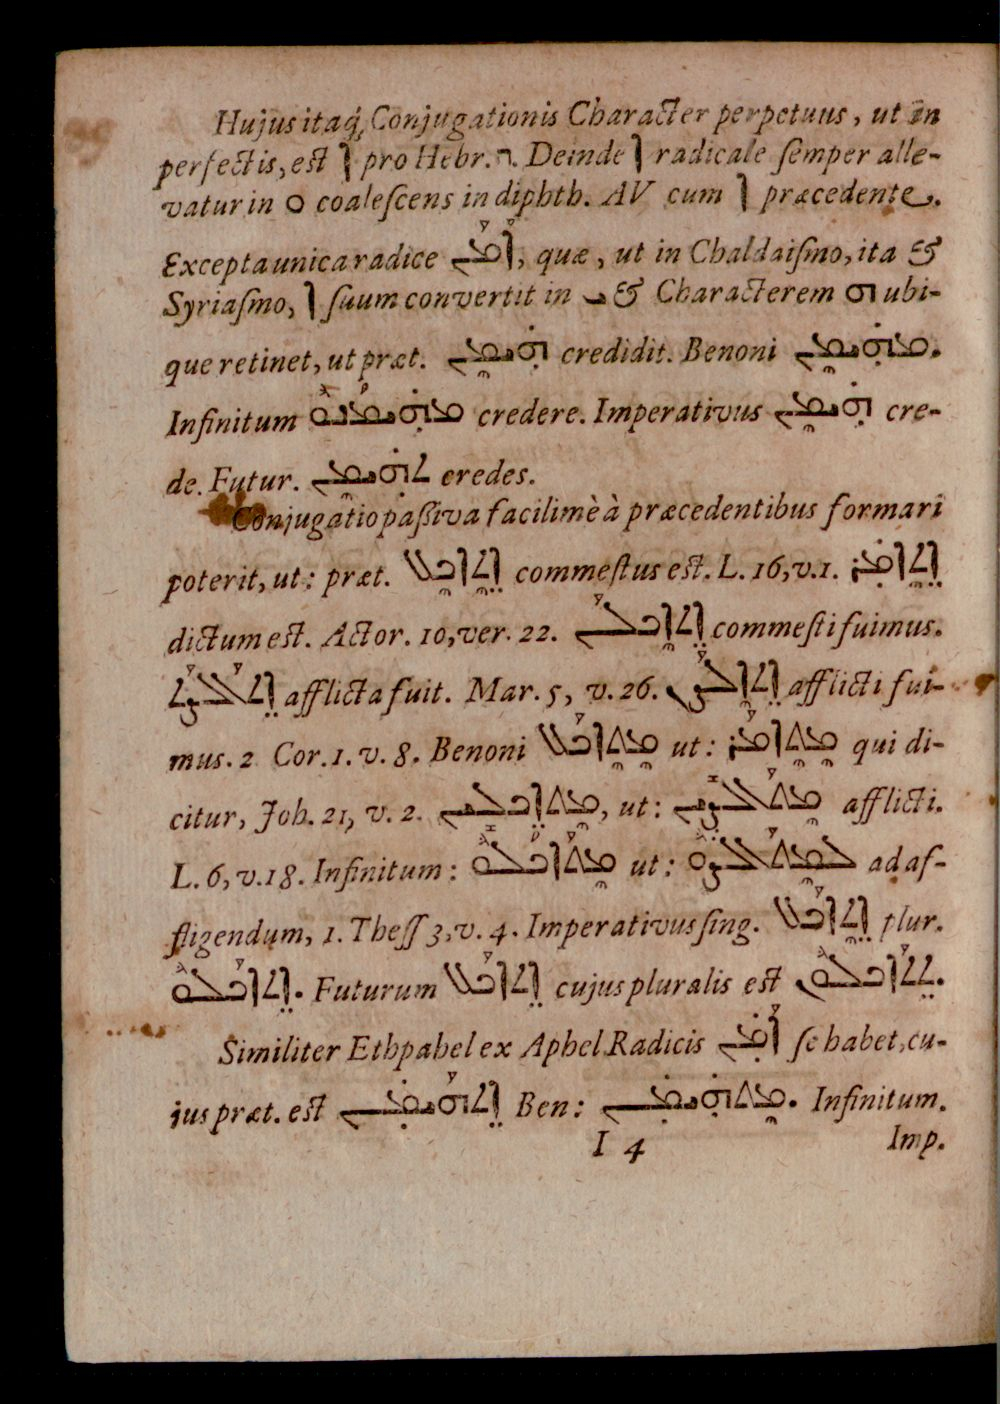 Hujus itaq́; Conjugationis Character perpetuus, ut in
perfectis, est ܐ pro Hebr. ה. Deinde ܐ radicale semper alle-
vatur in ܘ coalescens in diphth. AV cum ܐ præcedente.
Excepta unica radice ܐܡܢ, quæ, ut in Chaldaismo, ita &
Syriasmo, ܐ suum convertit in ܝ & Characterem ܗ ubi-
que retinet, ut præt. ܗܝܡܢ credidit. Benoni ܡܗܝܡܢ.
Infinitum ܡܗܝܡܢܘ credere. Imperativus ܗܝܡܢ cre-
de. Futur. ܬܗܝܡܢ credes.
Conjugatio passiva facilimè à præcedentibus formari
poterit, ut: præt. ܐܬܐܟܠ commestus est. L. 16, v. 1. ܐܬܐܡܪ
dictum est. Actor. 10, ver. 22. ܐܬܐܟܠܢ commesti fuimus.
afflicta fuit. Mar. 5, v. 26. ܐܬܐܠܨܢ afflicti fui-
mus. 2 Cor. 1. v. 8. Benoni ܡܬܐܟܠ ut: ܡܬܐܡܪ qui di-
citur, Joh. 21, v. 2. ܡܬܐܟܠܝܢ, ut: ܡܬܐܠܨܝܢ afflicti.
L. 6, v. 18. Infinitum: ܡܬܐܟܠܘ ut: ܠܡܬܐܠܨܘ ad af-
fligendum, 1. Thess 3, v. 4. Imperativus sing. ܐܬܐܟܠ plur.
ܐܬܐܟܠܘ. Futurum ܐܬܐܟܠ cujus pluralis est ܢܬܐܟܠܘܢ.
Similiter Ethpahel ex Aphel Radicis ܐܡܢ se habet, cu-
jus præt. est ܐܬܗܝܡܢ Ben: ܡܬܗܝܡܢ. Infinitum.
I 4 Imp.